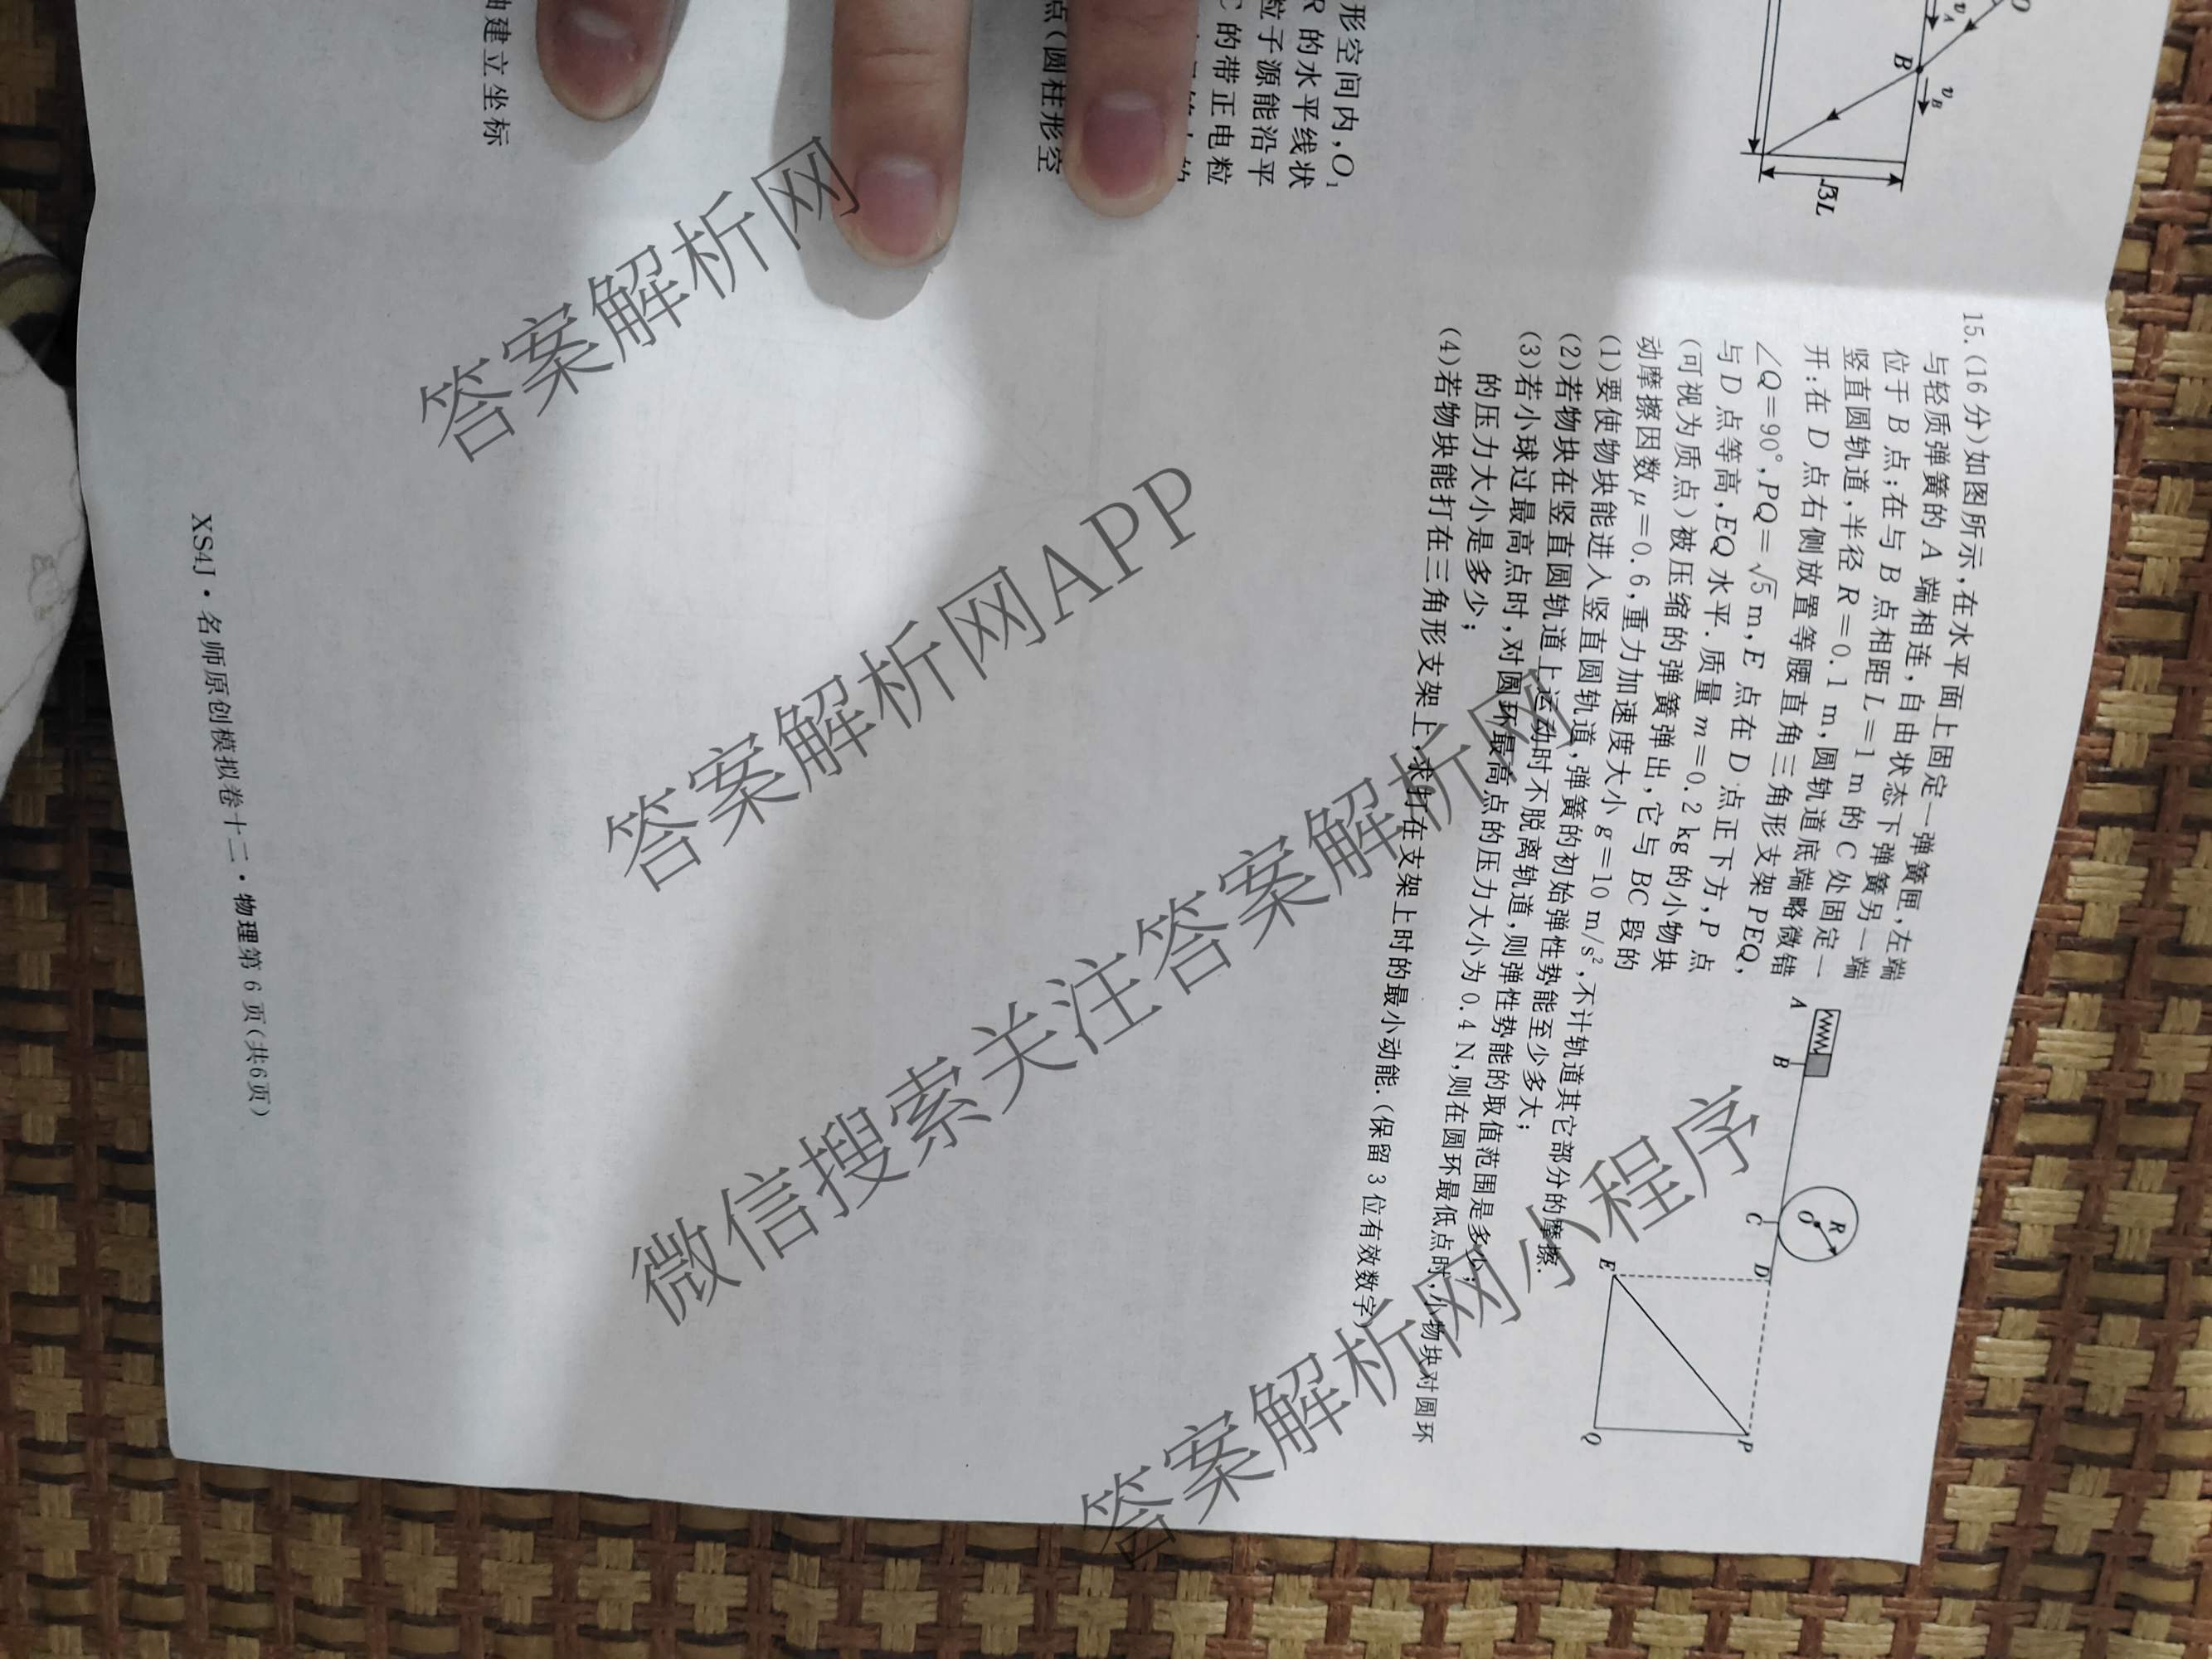 O
v_A
B
v_B
√3L
形空间内,O₁
R的水平线状
粒子源能沿平
C的带正电粒
点(圆柱形空
轴建立坐标
15.(16分)如图所示,在水平面上固定一弹簧匣,左端
与轻质弹簧的A端相连,自由状态下弹簧另一端
位于B点;在与B点相距L=1 m的C处固定一
竖直圆轨道,半径R=0.1 m,圆轨道底端略微错
开;在D点右侧放置等腰直角三角形支架PEQ,
∠Q=90°,PQ=√5 m,E点在D点正下方,P点
与D点等高,EQ水平.质量m=0.2 kg的小物块
(可视为质点)被压缩的弹簧弹出,它与BC段的
动摩擦因数μ=0.6,重力加速度大小g=10 m/s²,不计轨道其它部分的摩擦.
(1)要使物块能进入竖直圆轨道,弹簧的初始弹性势能至少多大;
(2)若物块在竖直圆轨道上运动时不脱离轨道,则弹性势能的取值范围是多少;
(3)若小球过最高点时,对圆环最高点的压力大小为0.4 N,则在圆环最低点时,小物块对圆环
的压力大小是多少;
(4)若物块能打在三角形支架上,求打在支架上时的最小动能.(保留3位有效数字)
A
B
R
O
C
D
E
P
Q
XS4J·名师原创模拟卷十二·物理第6页(共6页)
答案解析网
答案解析网APP
微信搜索关注答案解析网
答案解析网小程序